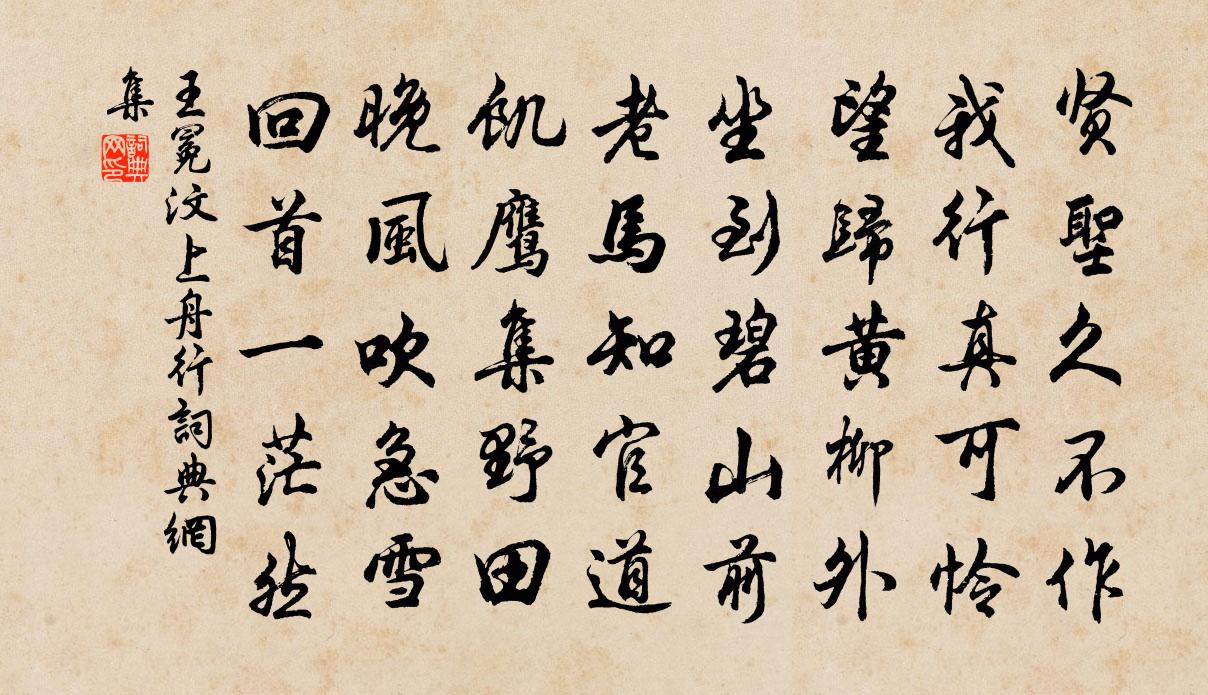 贤聖久不作
我行真可怜
望歸黄柳外
坐到碧山前
老馬知官道
飢鷹集野田
晚風吹急雪
回首一茫然
王冕汶上舟行詞典網
集
詞典
网印